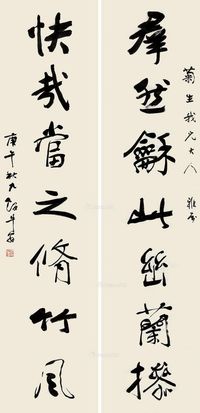 菊生我兄大人 雅屬
羣然龢此幽蘭操
快哉當之脩竹風
庚午秋九